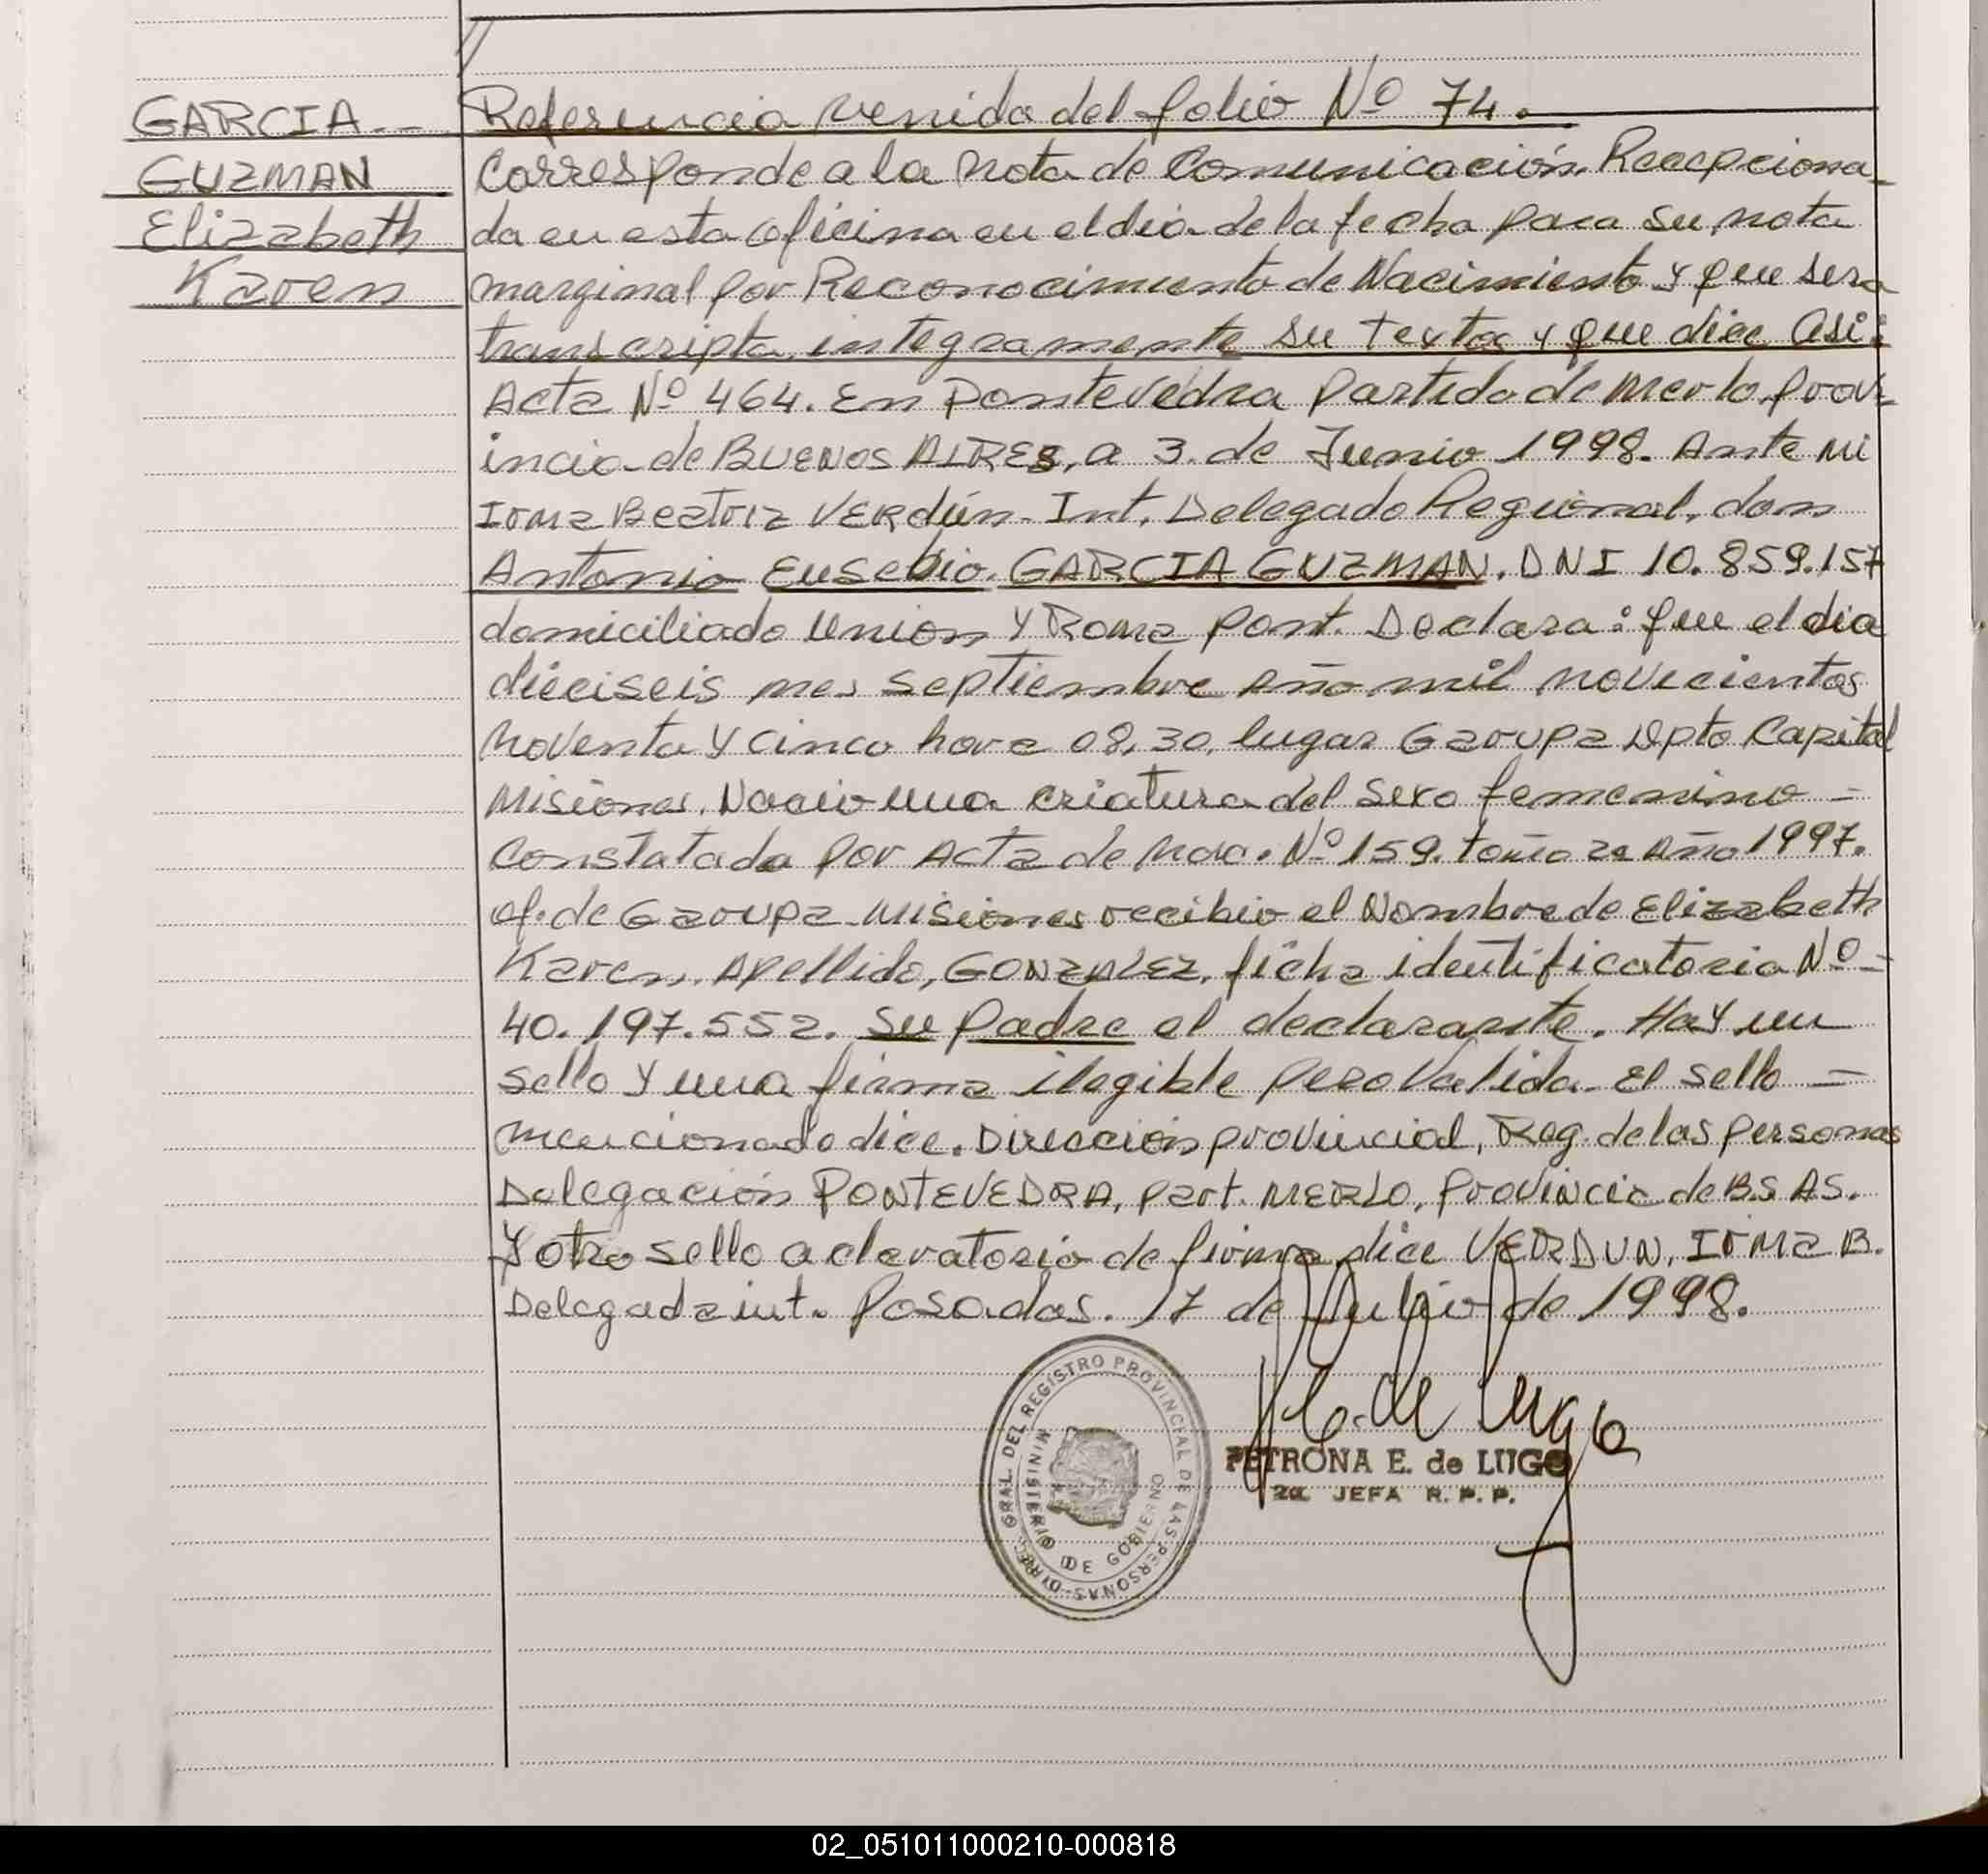 GARCIA
GUZMAN
Elizabeth
Karen
Referencia venida del folio Nº 74.
Corresponde a la nota de Comunicación. Recepciona-
da en esta oficina en el dia de la fecha para su nota
marginal por Reconocimiento de Nacimiento y que sera
transcripta integramente su texto y que dice asi:
Acta Nº 464. En Pontevedra Partido de Merlo, prov-
incia de BUENOS AIRES, a 3. de Junio 1998. Ante mi
Irma Beatriz VERdún. Int. Delegado Regional, don
Antonio Eusebio. GARCIA GUZMAN. DNI 10.859.157
domiciliado Union y Roma pont. Declara: que el dia
dieciseis mes septiembre año mil novecientos
noventa y cinco hora 08,30, lugar Garupa Dpto Capital
Misiones. Nacio una criatura del sexo femenino -
Constatada por Acta de nac. Nº 159. tomo 2º Año 1997.
of. de Garupa Misiones recibio el Nombre de Elizabeth
Karen. Apellido, GONZALEZ, ficha identificatoria Nº -
40.197.552. su padre el declarante. Hay un
sello y una firma ilegible pero Valida. El sello -
mencionado dice. Direccion provincial, Reg. de las personas
Delegación PONTEVEDRA, part. MERLO, provincia de Bs. AS.
y otro sello aclaratorio de firma dice VERDUN, Irma B.
Delegada int. Posadas. 17 de Julio de 1998.
DIREC. GRAL. DEL REGISTRO PROVINCIAL DE LAS PERSONAS
MINISTERIO DE GOBIERNO
de Lugo
PETRONA E. de LUGO
2a. JEFA R. P. P.
02_051011000210-000818